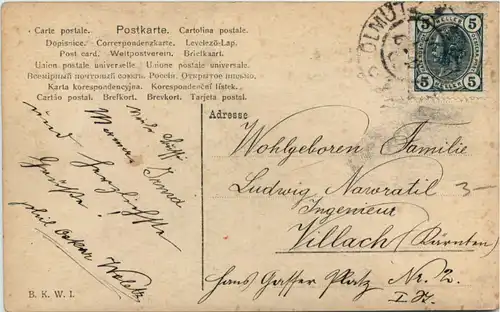 Carte postale. Postkarte. Cartolina postale.
Dopisnice. Correspondenzkarte. Levelező-Lap.
Post card. Weltpostverein. Briefkaart.
Union postale universelle. Unione postale universale.
Всемірный почтовый союзъ. Россія. Открытое письмо.
Karta korespondencyjna. Korespondenční lístek.
Cartão postal. Brefkort. Brevkort. Tarjeta postal.
OLMÜTZ
5 5
HELLER HELLER
5 5
Adresse
Wohlgeboren Familie
Ludwig Nawratil
Ingenieur
Villach (Kärnten)
Hans Gasser Platz Nr. 2.
I. St.
3-
Irma
und herzlichste
Grüsse!
phil Oskar
B. K. W. I.